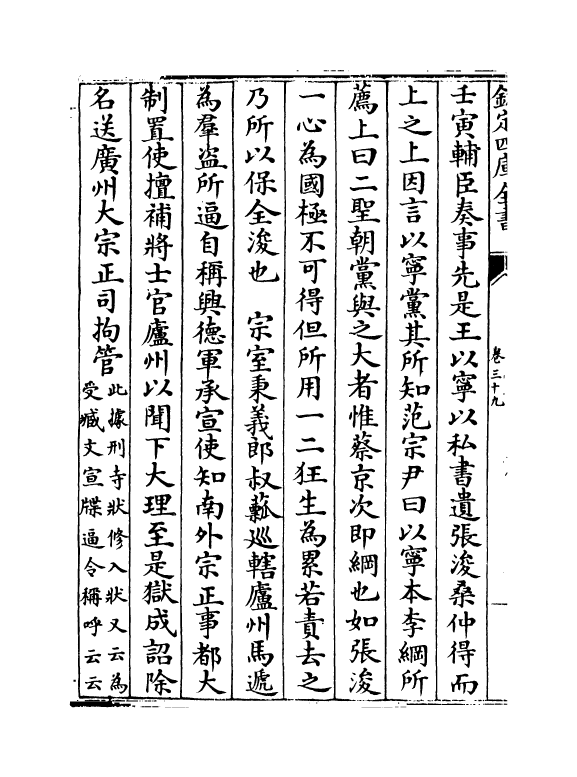 欽定四庫全書
卷三十九
壬寅輔臣奏事先是王以寧以私書遺張浚桑仲得而
上之上因言以寧黨其所知范宗尹曰以寧本李綱所
薦上曰二聖朝黨與之大者惟蔡京次即綱也如張浚
一心為國極不可得但所用一二狂生為累若責去之
乃所以保全浚也　宗室秉義郎叔虆巡轄廬州馬遞
為羣盜所逼自稱興德軍承宣使知南外宗正事都大
制置使擅補將士官廬州以聞下大理至是獄成詔除
名送廣州大宗正司拘管
此據刑寺狀修入狀又云為
受臧文宣牒逼令稱呼云云